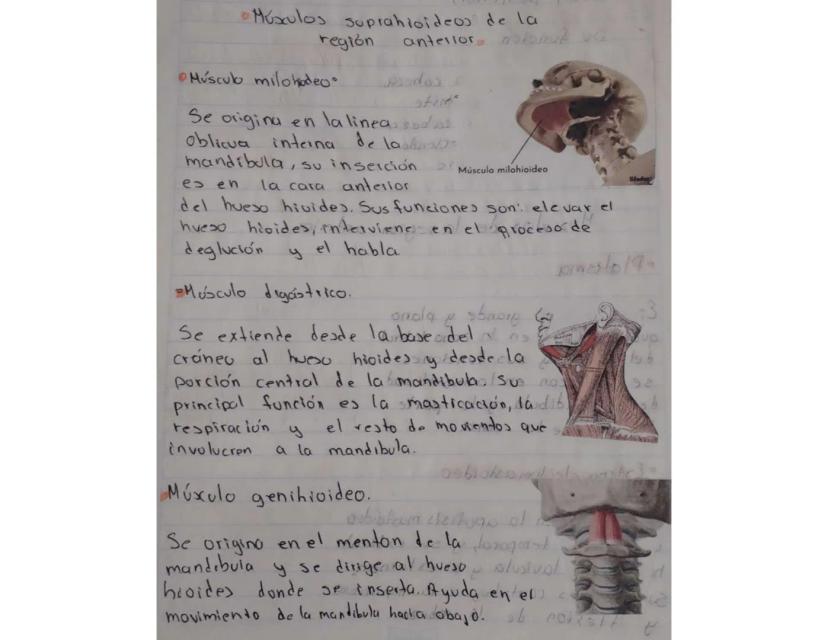 Músculos suprahioideos de la
región anterior.
Músculo milohodeo.
Se origina en la linea
oblicua interna de la
mandíbula, su inserción
es en la cara anterior
Músculo milohioideo
del hueso hiuides. Sus funciones son: elevar el
hueso hioides, interviene en el proceso de
deglución y el habla
Músculo digástrico.
Se extiende desde la base del
cráneo al hueso hioides y desde la
porción central de la mandibula. Su
principal función es la masticación, la
respiración y el resto de movientos que
involucren a la mandíbula.
Múxulo genihioideo.
Se origina en el menton de la
mandibula y se dirige al hueso
hioides donde se inserta. Ayuda en el
movimiento de la mandíbula hacia abajo.